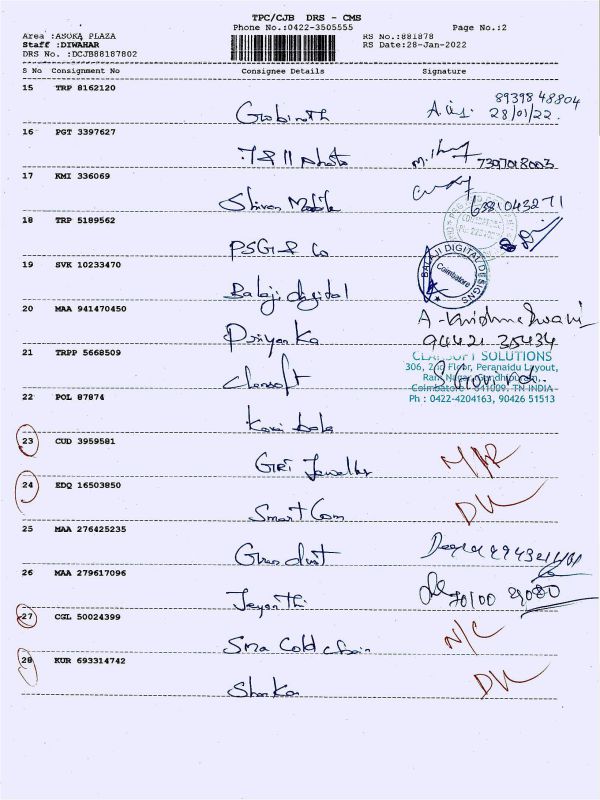 TPC/CJB DRS - CMS
Phone No.:0422-3505555
Page No.:2
Area :ASOKA PLAZA
RS No.:881878
Staff :DIWAHAR
RS Date:28-Jan-2022
DRS No. :DCJB88187802
S No Consignment No Consignee Details Signature
15 TRP 8162120
8939848804
Gobinath
28/01/22.
16 PGT 3397627
7397018003
17 KMI 336069
Mobile
6381043271
18 TRP 5189562
PSG & Co
19 SVK 10233470
BALAJI DIGITAL DESIGNS
Coimbatore
Balaji digital
20 MAA 941470450
A-Krishnaswami
Priyanka
94421 35434
21 TRPP 5668509
CLARSOFT SOLUTIONS
306, 2nd Floor, Peranaidu Layout,
Ram Nagar, Gandhipuram,
Clarsoft
Coimbatore - 641009. TN INDIA
22 POL 87874
Ph : 0422-4204163, 90426 51513
23 CUD 3959581
GIRI Jewellers
24 EDQ 16503850
DL
Smart Com
25 MAA 276425235
26 MAA 279617096
Jeyanthi
27 CGL 50024399
N/C
Sria Cold chain
28 KUR 693314742
DL
Shankar